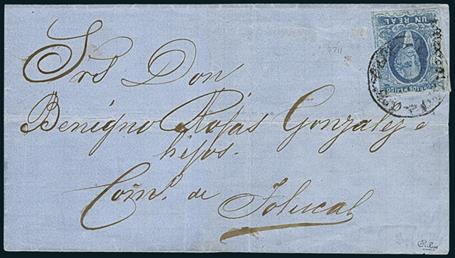 UN REAL
Srs Don
Benigno Rojas Gonzalez e
hijos.
Comº. de Toluca